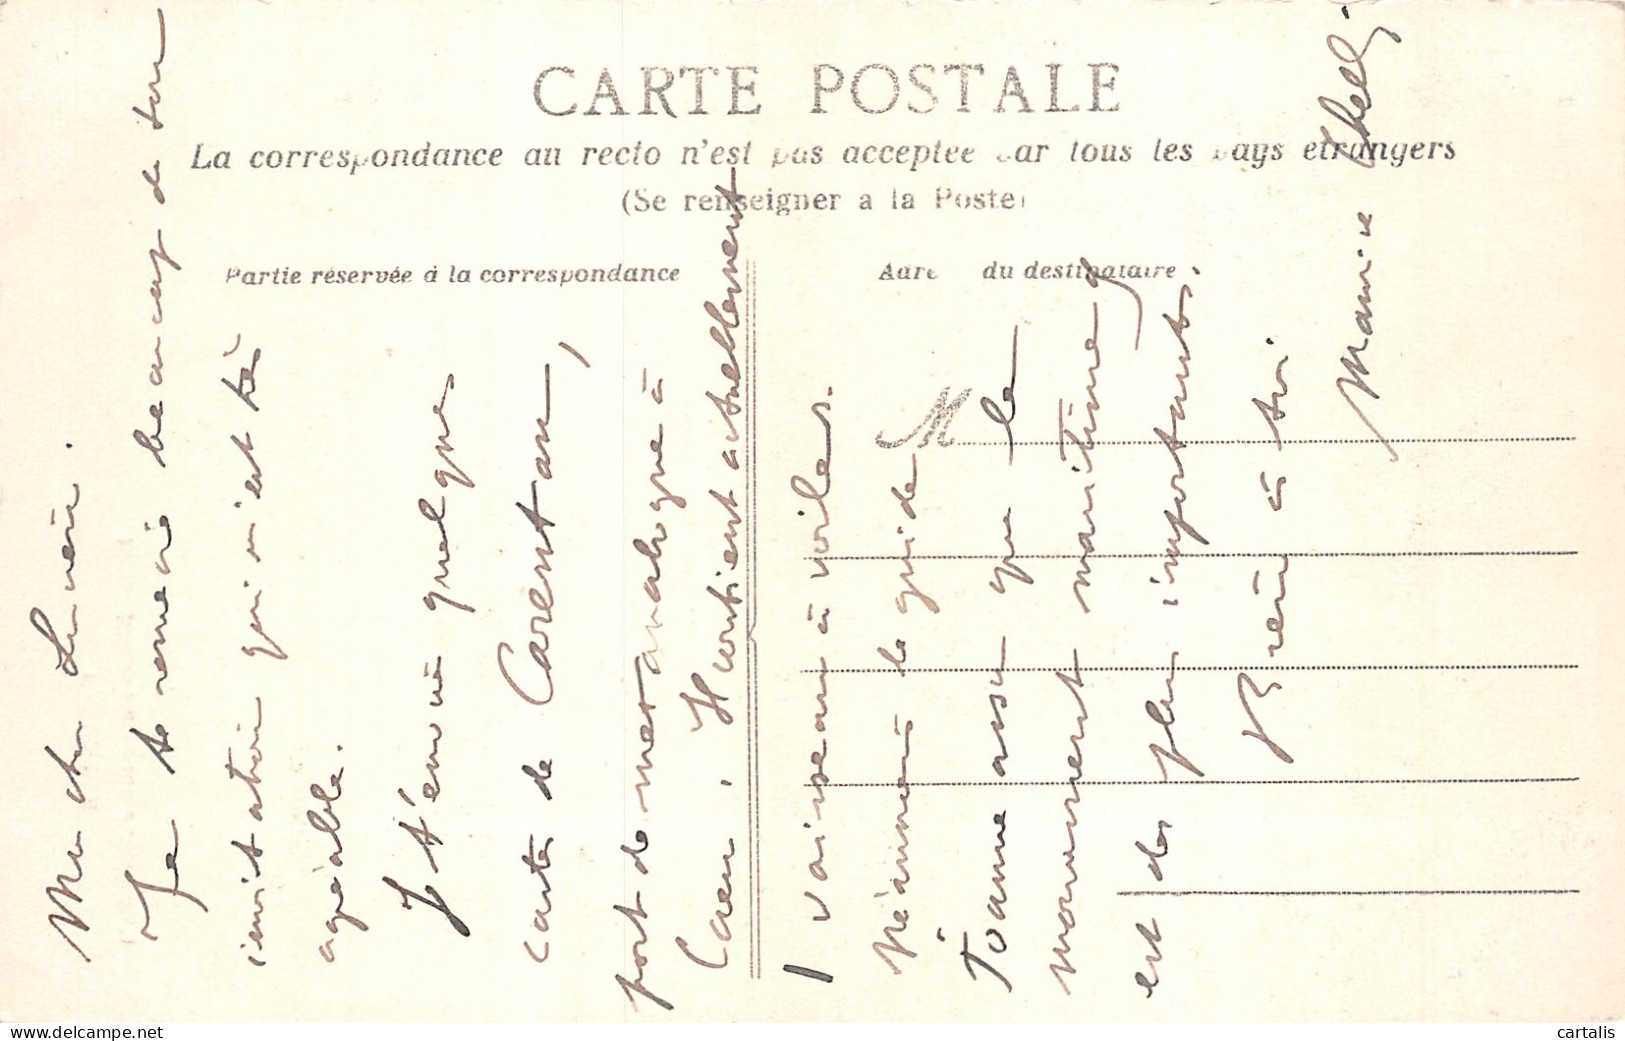 CARTE POSTALE
La correspondance au recto n'est pas acceptée par tous les pays étrangers
(Se renseigner à la Poste)
Partie réservée à la correspondance
Adre du destinataire
M
Mon cher Lucien.
Je te remercie beaucoup de ton
invitation qui m'est très
agréable.
Je t'envoie quelques
cartes de Carentan,
port de mer analogue à
Caen. Il contient actuellement
1 vaisseau à voiles.
Néanmoins le guide
Joanne assure que le
mouvement maritime y
est des plus importants.
Bien à toi
Maurice
cartalis
www.delcampe.net